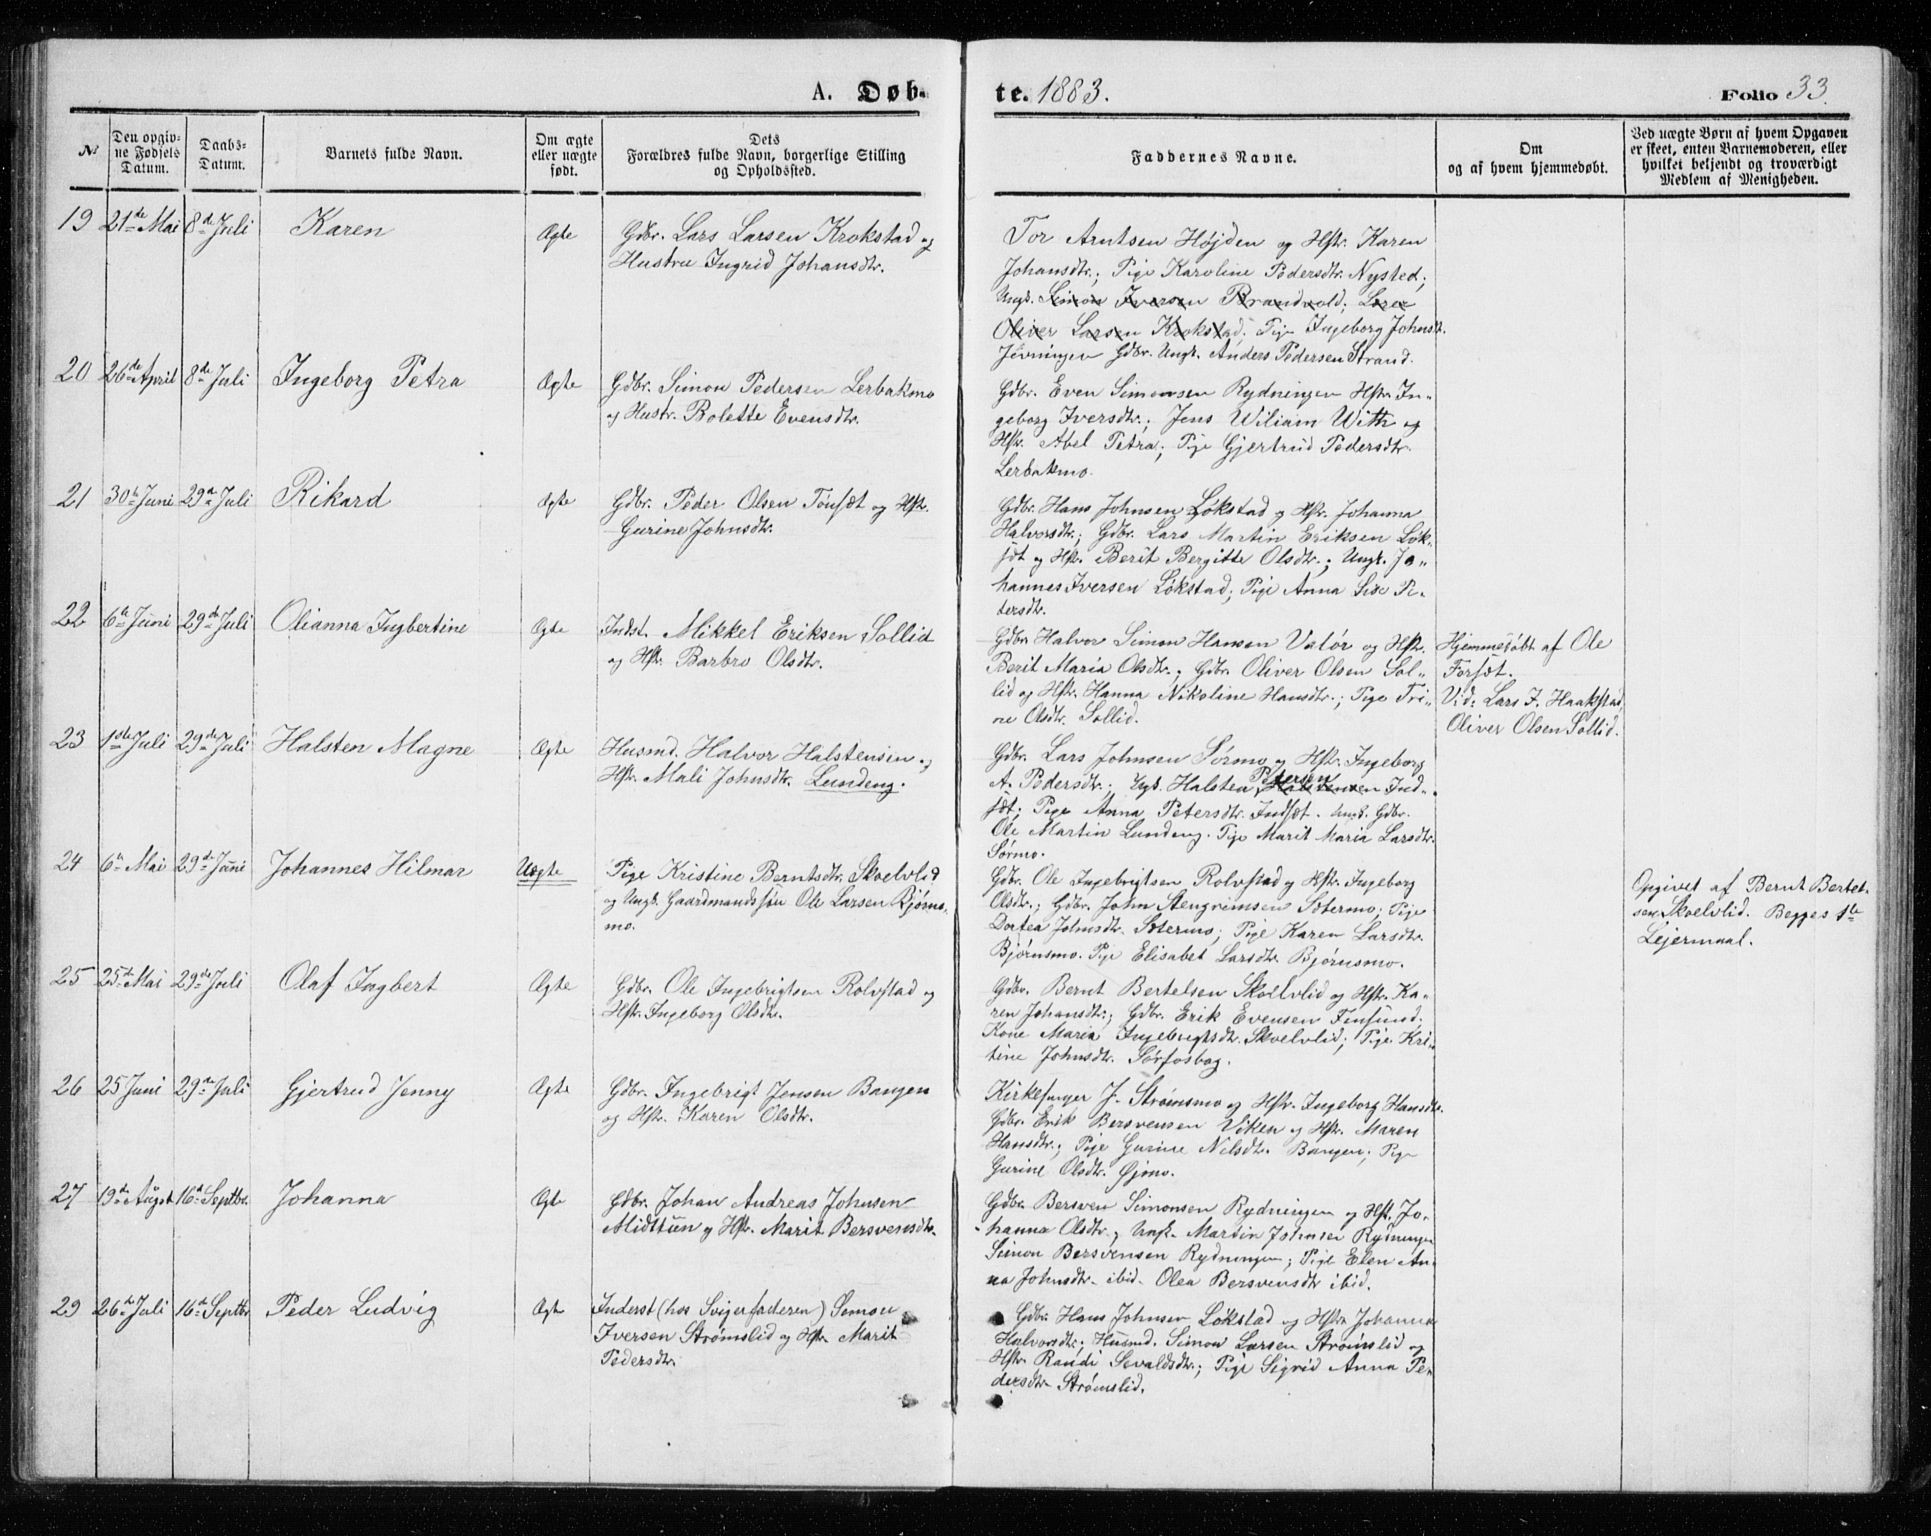 A. Døb-
te. 1883.
Folio 33
№
Den opgiv-
ne Fødsels
Datum.
Daabs-
Datum.
Barnets fulde Navn.
Om ægte
eller uægte
født.
Dets
Forældres fulde Navn, borgerlige Stilling
og Opholdssted.
Faddernes Navne.
Om
og af hvem hjemmedøbt.
Ved uægte Børn af hvem Opgaven
er skeet, enten Barnemoderen, eller
hvilket bekjendt og troværdigt
Medlem af Menigheden.
19 21de Mai 8de Juli Karen Ægte
Gdbr. Lars Larsen Krokstad og
Hustru Ingrid Johansdtr.
Tor Arntsen Højden og Hstr. Karen
Johansdtr.; Pige Karoline Pedersdtr. Nysted;
Ungk. Simon Iversen Brandvold; Lars
Oliver Larsen Krokstad; Pige Ingeborg Johnsdt.
Gdbr. Ungk. Anders Pedersen Strand.
20 26de April 8de Juli Ingeborg Petra Ægte
Gdbr. Simon Pedersen Lerbakmo
og Hustr. Bolette Evensdtr.
Gdbr. Even Simonsen Rydningen Hstr. In-
geborg Iversdtr.; Jens Wiliam With og
Hstr. Abel Petra; Pige Gjertrud Pedersdtr.
Lerbakmo.
21 30te Juni 29de Juli Rikard Ægte
Gdbr. Peder Olsen Tønsæt og Hstr.
Gurine Johnsdtr.
Gdbr. Hans Johnsen Løkstad og Hstr. Johanna
Halvorsdtr.; Gdbr. Lars Martin Eriksen Løk-
sæt og Hstr. Berit Bergitte Olsdtr.; Ungk. Jo-
hannes Iversen Løkstad; Pige Anna Lise Pe-
tersdtr.
22 6te Juni 29de Juli Olianna Ingbertine Ægte
Indst. Mikkel Eriksen Sollid
og Hstr. Barbro Olsdtr.
Gdbr. Halvor Simon Hansen Valør og Hstr.
Berit Maria Olsdtr.; Gdbr. Oliver Olsen Sol-
lid og Hstr. Hanna Nikoline Hansdtr.; Pige Tri-
ne Olsdtr. Sollid.
Hjemmedøbt af Ole
Forsæt.
Vid: Lars J. Haakstad,
Oliver Olsen Sollid.
23 1ste Juli 29de Juli Halsten Magne Ægte
Husmd. Halvor Halstensen og
Hstr. Mali Johnsdtr. Lundeng.
Gdbr. Lars Johnsen Sørmo og Hstr. Ingeborg
A. Pedersdtr.; Ugk. Halsten Petersen Halstensen Ind-
sæt; Pige Anna Petersdtr. Indsæt. Gdbr.
Ole Martin Lundeng. Pige Marit Maria Larsdtr.
Sørmo.
24 6te Mai 29de Juni Johannes Hilmar Uægte
Pige Kristine Berntsdtr. Skoelvlid
og Ungk. Gaardmandssøn Ole Larsen Bjørns-
mo.
Gdbr. Ole Ingebrigtsen Rolvstad og Hstr. Ingeborg
Olsdtr.; Gdbr. John Stengrimsen Sætermo; Pige
Dortea Johnsdtr. Sætermo; Pige Karen Larsdtr.
Bjørnsmo. Pige Elisabet Larsdtr. Bjørnsmo.
Opgivet af Bernt Bertel-
sen Skoelvlid. Begges 1ste
Lejermaal.
25 25de Mai 29de Juli Olaf Ingbert Ægte
Gdbr. Ole Ingebrigtsen Rolvstad og
Hstr. Ingeborg Olsdtr.
Gdbr. Bernt Bertelsen Skoelvlid og Hstr. Ka-
ren Johansdtr.; Gdbr. Erik Evensen Finsund.
Kone Maria Ingebrigtsdtr. Skoelvlid; Pige Kri-
tine Johnsdtr. Sørfosbog.
26 25 Juni 29de Juli Gjertrud Jenny Ægte
Gdbr. Ingebrigt Jensen Bangen
og Hstr. Karen Olsdtr.
Kirkesanger J. Strømsmo og Hstr. Ingeborg Hansdtr.
Gdbr. Erik Bersvensen Viken og Hstr. Maren
Hansdtr.; Pige Gurine Nilsdtr. Bangen; Pige
Gurine Olsdtr. Øjmo.
27 19de August 16de Septbr. Johanna Ægte
Gdbr. Johan Andreas Johnsen
Midttun og Hstr. Marit Bersvensdtr.
Gdbr. Bersven Simonsen Rydningen og Hstr. Jo-
hanna Olsdtr.; Ungk. Martin Johnsen Rydningen
Simon Bersvensen Rydningen; Pige Elen An-
na Johnsdtr. ibid. Olea Bersvensdtr ibid.
29 26de Juli 16de Septbr Peder Ludvig Ægte
Inderst (hos Svigerfaderen) Simon
Iversen Strømslid og Hstr. Marit
Pedersdtr.
Gdbr. Hans Johnsen Løkstad og Hstr. Johanna
Halvorsdtr.; Husmd. Simon Larsen Strømslid og
Hstr. Randi Sevaldsdtr.; Pige Sigrid Anna Pe-
dersdtr. Strømslid.